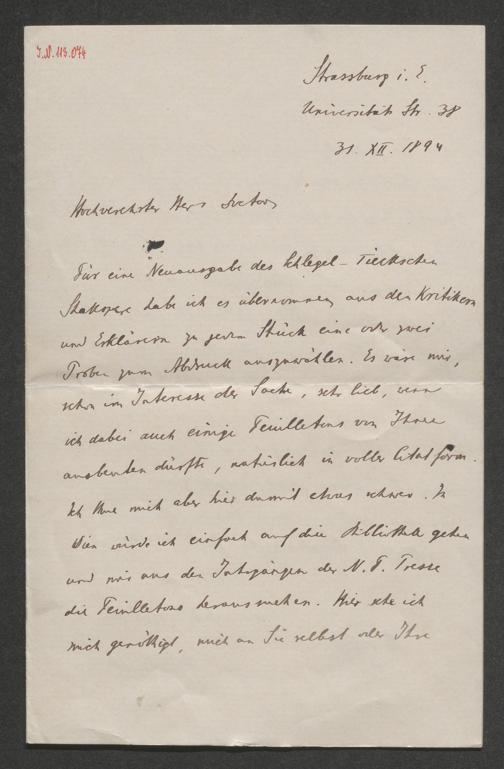 I.N. 113.074
Strassburg i. E.
Universität Str. 38
31. XII. 1894
Hochverehrter Herr Doctor,
Für eine Neuausgabe des Schlegel-Tieckschen
Shakspere habe ich es übernommen, aus den Kritikern
und Erklärern zu jedem Stück eine oder zwei
Proben zum Abdruck auszuwählen. Es wäre mir,
schon im Interesse der Sache, sehr lieb, wenn
ich dabei auch einige Feuilletons von Ihnen
ausbeuten dürfte, natürlich in voller Citatform.
Ich thue mich aber hier damit etwas schwer. In
Wien würde ich einfach auf die Bibliothek gehen
und mir aus den Jahrgängen der N. F. Presse
die Feuilletons heraussuchen. Hier sehe ich
mich genöthigt, mich an Sie selbst oder Ihre